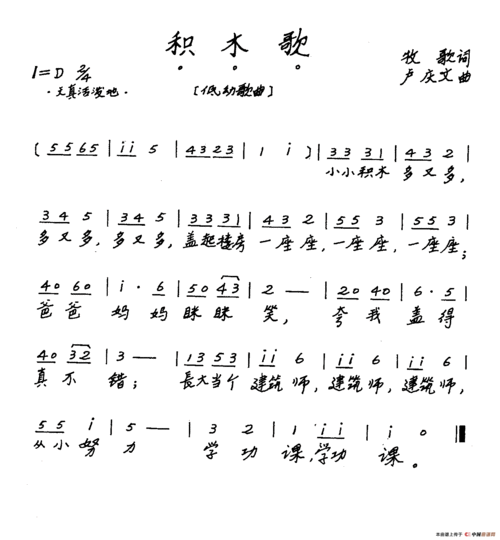 积木歌
1=D 2/4
牧歌词
·天真活泼地·
[低幼歌曲]
卢庆文曲
(5565 | ii 5 | 4323 | 1 i) | 33 31 | 43 2 |
小小积木 多又多,
34 5 | 34 5 | 33 31 | 43 2 | 55 3 | 55 3 |
多又多, 多又多, 盖起楼房 一座座, 一座座, 一座座;
40 60 | i· 6 | 50 43 | 2 — | 20 40 | 6· 5 |
爸爸 妈妈 眯眯 笑, 夸我 盖得
40 32 | 3 — | 13 53 | ii 6 | ii 6 | ii 6 |
真不 错; 長大当个 建筑师, 建筑师, 建筑师,
55 i | 5 — | 3 2 | 1 ii | i 0 ‖
从小努力 学功课,学功课。
本曲谱上传于 中国曲谱网